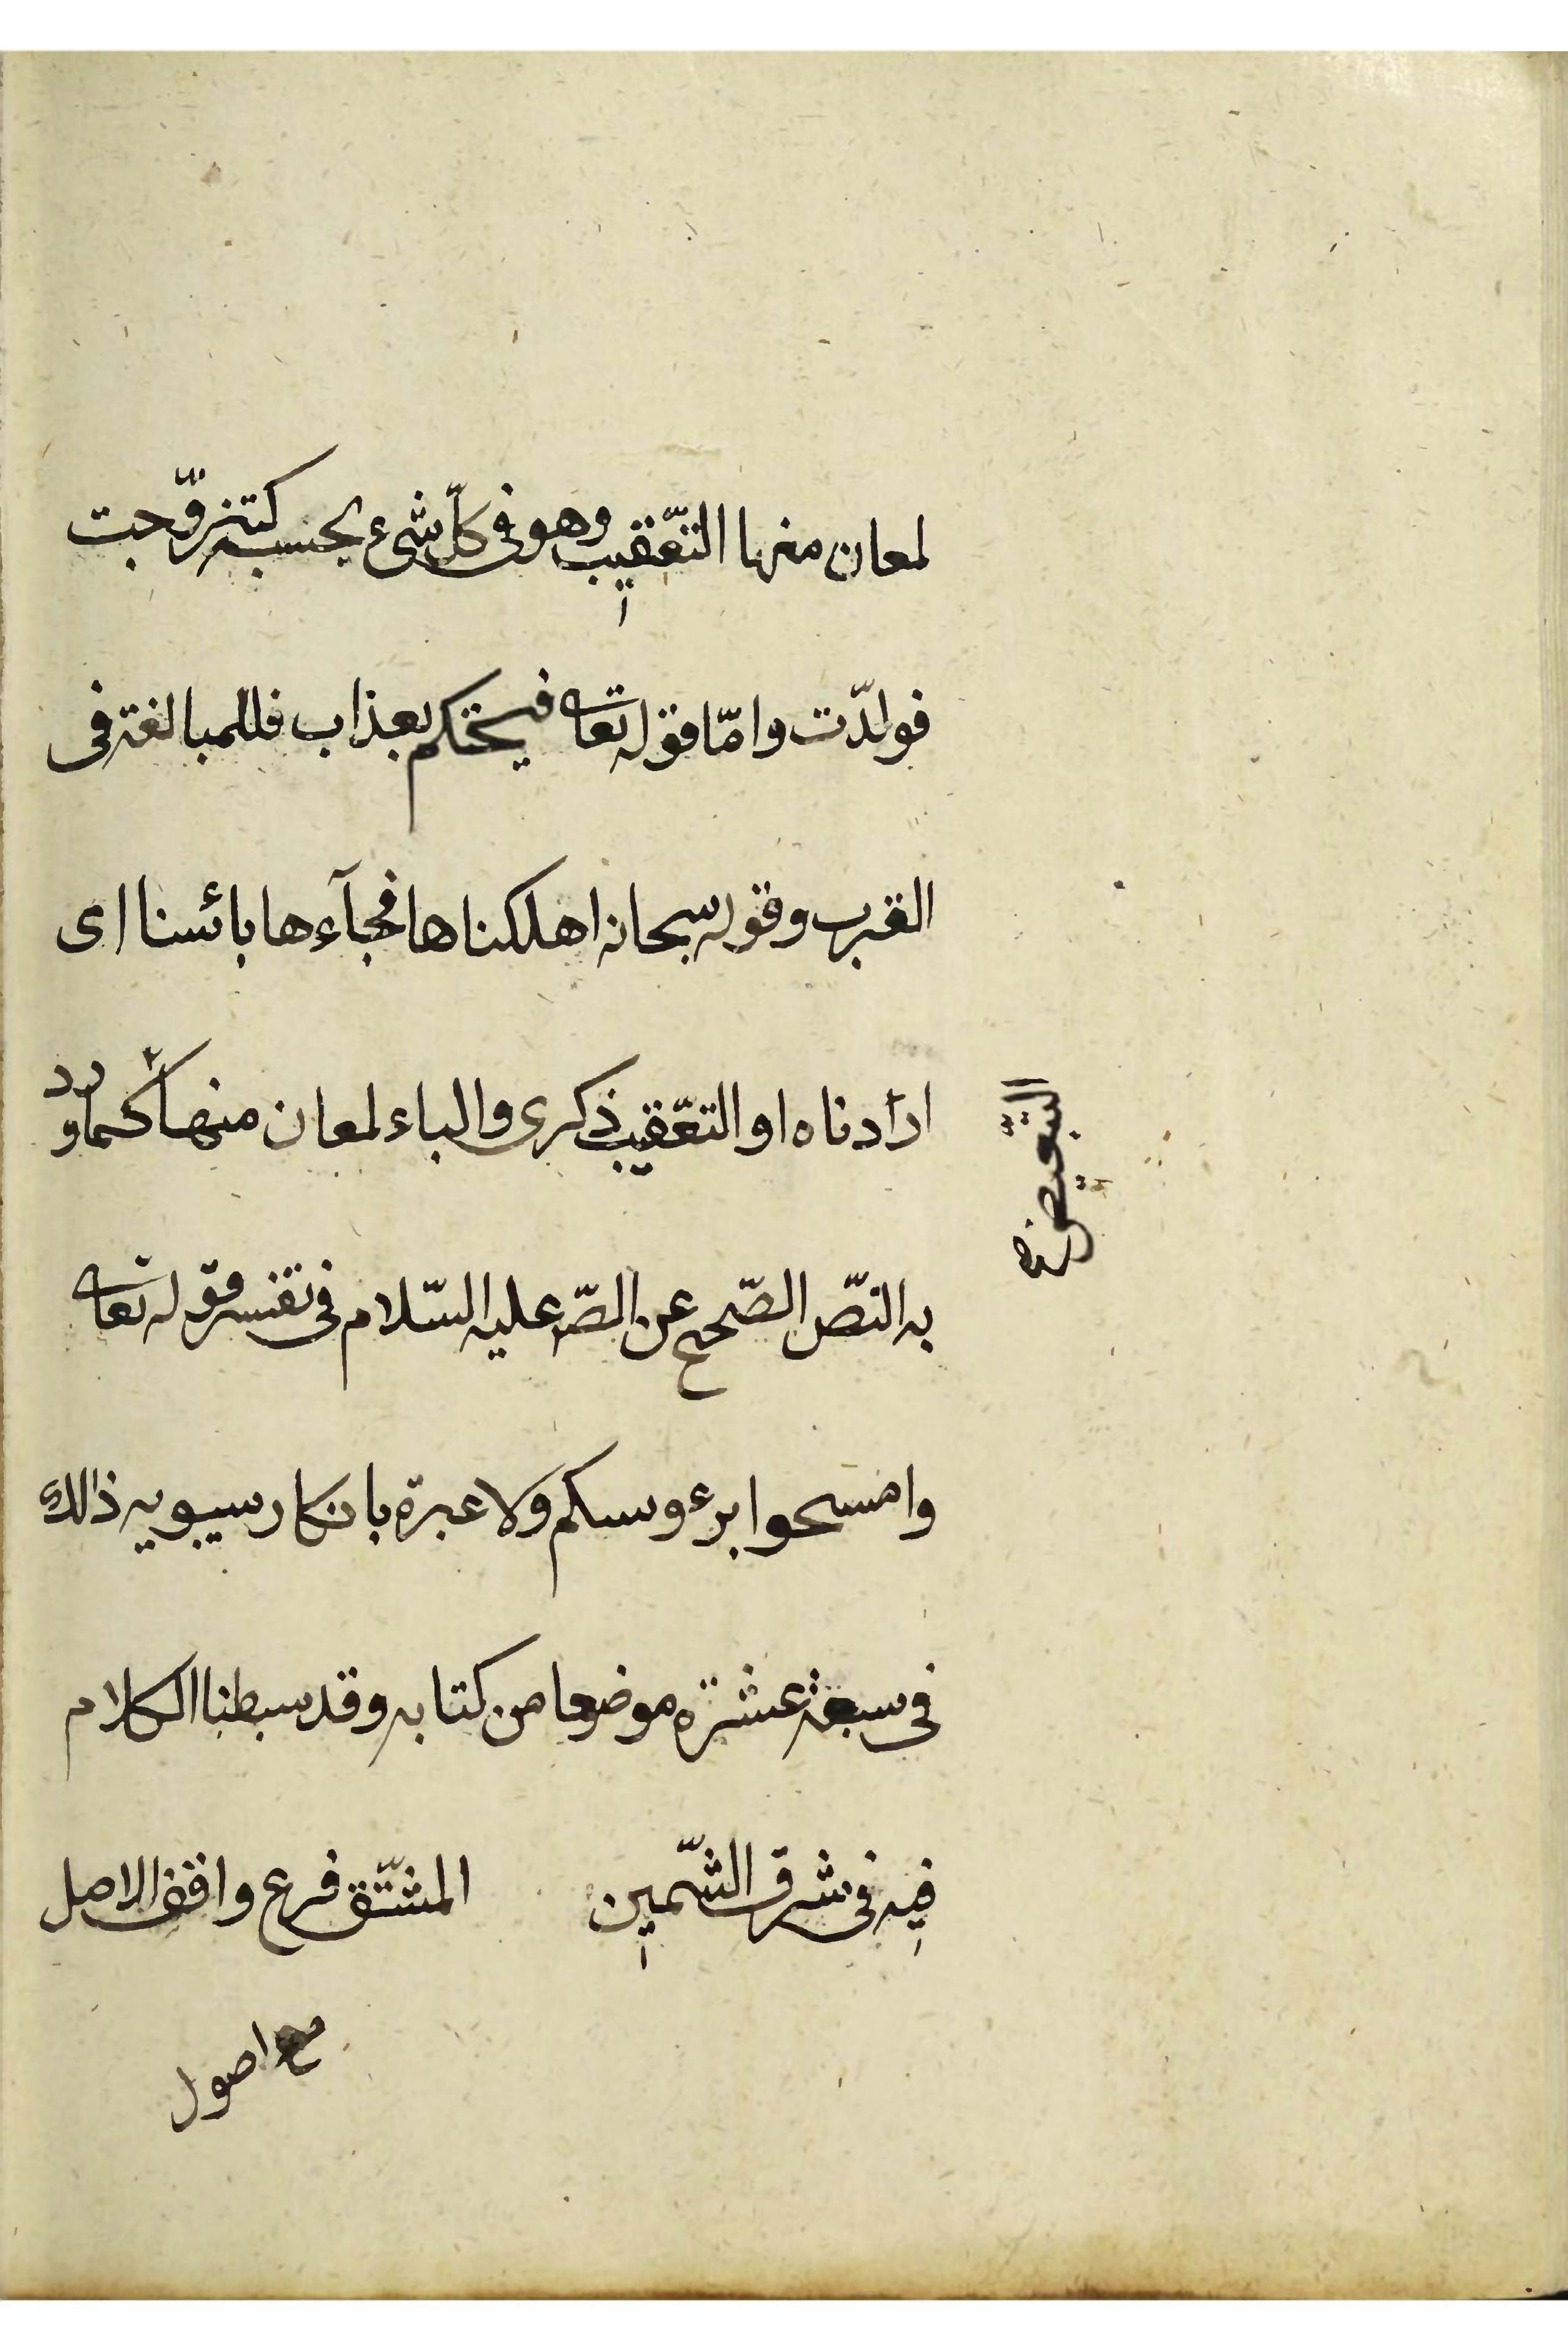 لمعان منها التعّقيب وهو فى كلّ شىء بحسبه كتزوّجت
فولدّت وامّا قوله تعالى فيسحتكم بعذاب فللمبالغة فى
القرب وقوله سبحانه اهلكناها فجآءها بائسنا اى
اراَدناه او التعّقيب ذكرى والباء لمعان منها كما ورد
التّبعيض
به النصّ الصّحيح عن الصّ عليه السّلام فى تفسير قوله تعالى
وامسحوا برءوسكم ولا عبرة بانكار سيبويه ذالك
فى سبعة عشرة موضعا من كتابه وقد سبطنا الكلام
فيه فى شرق الشّمين المشتّق فرع وافق الاصل
مع اصول